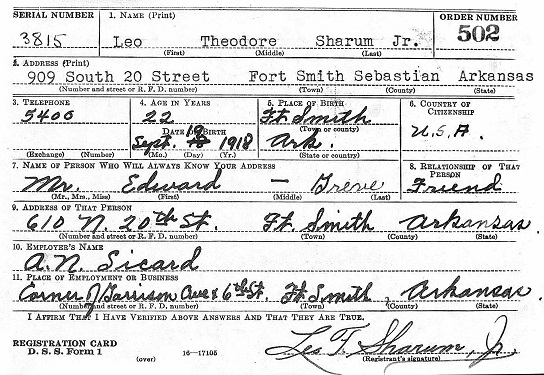 SERIAL NUMBER 1. NAME (Print) ORDER NUMBER
3815 Leo Theodore Sharum Jr. 502
(First) (Middle) (Last)
2. ADDRESS (Print)
909 South 20 Street Fort Smith Sebastian Arkansas
(Number and street or R. F. D. number) (Town) (County) (State)
3. TELEPHONE 4. AGE IN YEARS 5. PLACE OF BIRTH 6. COUNTRY OF CITIZENSHIP
5400 22 Ft. Smith
DATE OF BIRTH (Town or county)
Sept. 19 1918 Ark. U.S.A.
(Exchange) (Number) (Mo.) (Day) (Yr.) (State or country)
7. NAME OF PERSON WHO WILL ALWAYS KNOW YOUR ADDRESS 8. RELATIONSHIP OF THAT PERSON
Mr. Edward — Greve Friend
(Mr., Mrs., Miss) (First) (Middle) (Last)
9. ADDRESS OF THAT PERSON
610 N. 20th St. Ft. Smith Arkansas.
(Number and street or R. F. D. number) (Town) (County) (State)
10. EMPLOYER'S NAME
A. N. Sicard
11. PLACE OF EMPLOYMENT OR BUSINESS
Corner of Garrison Ave & 6th St. Ft. Smith, Arkansas.
(Number and street or R. F. D. number) (Town) (County) (State)
I AFFIRM THAT I HAVE VERIFIED ABOVE ANSWERS AND THAT THEY ARE TRUE.
REGISTRATION CARD
D. S. S. Form 1 (over) 16—17105 Leo T. Sharum, Jr.
(Registrant's signature)